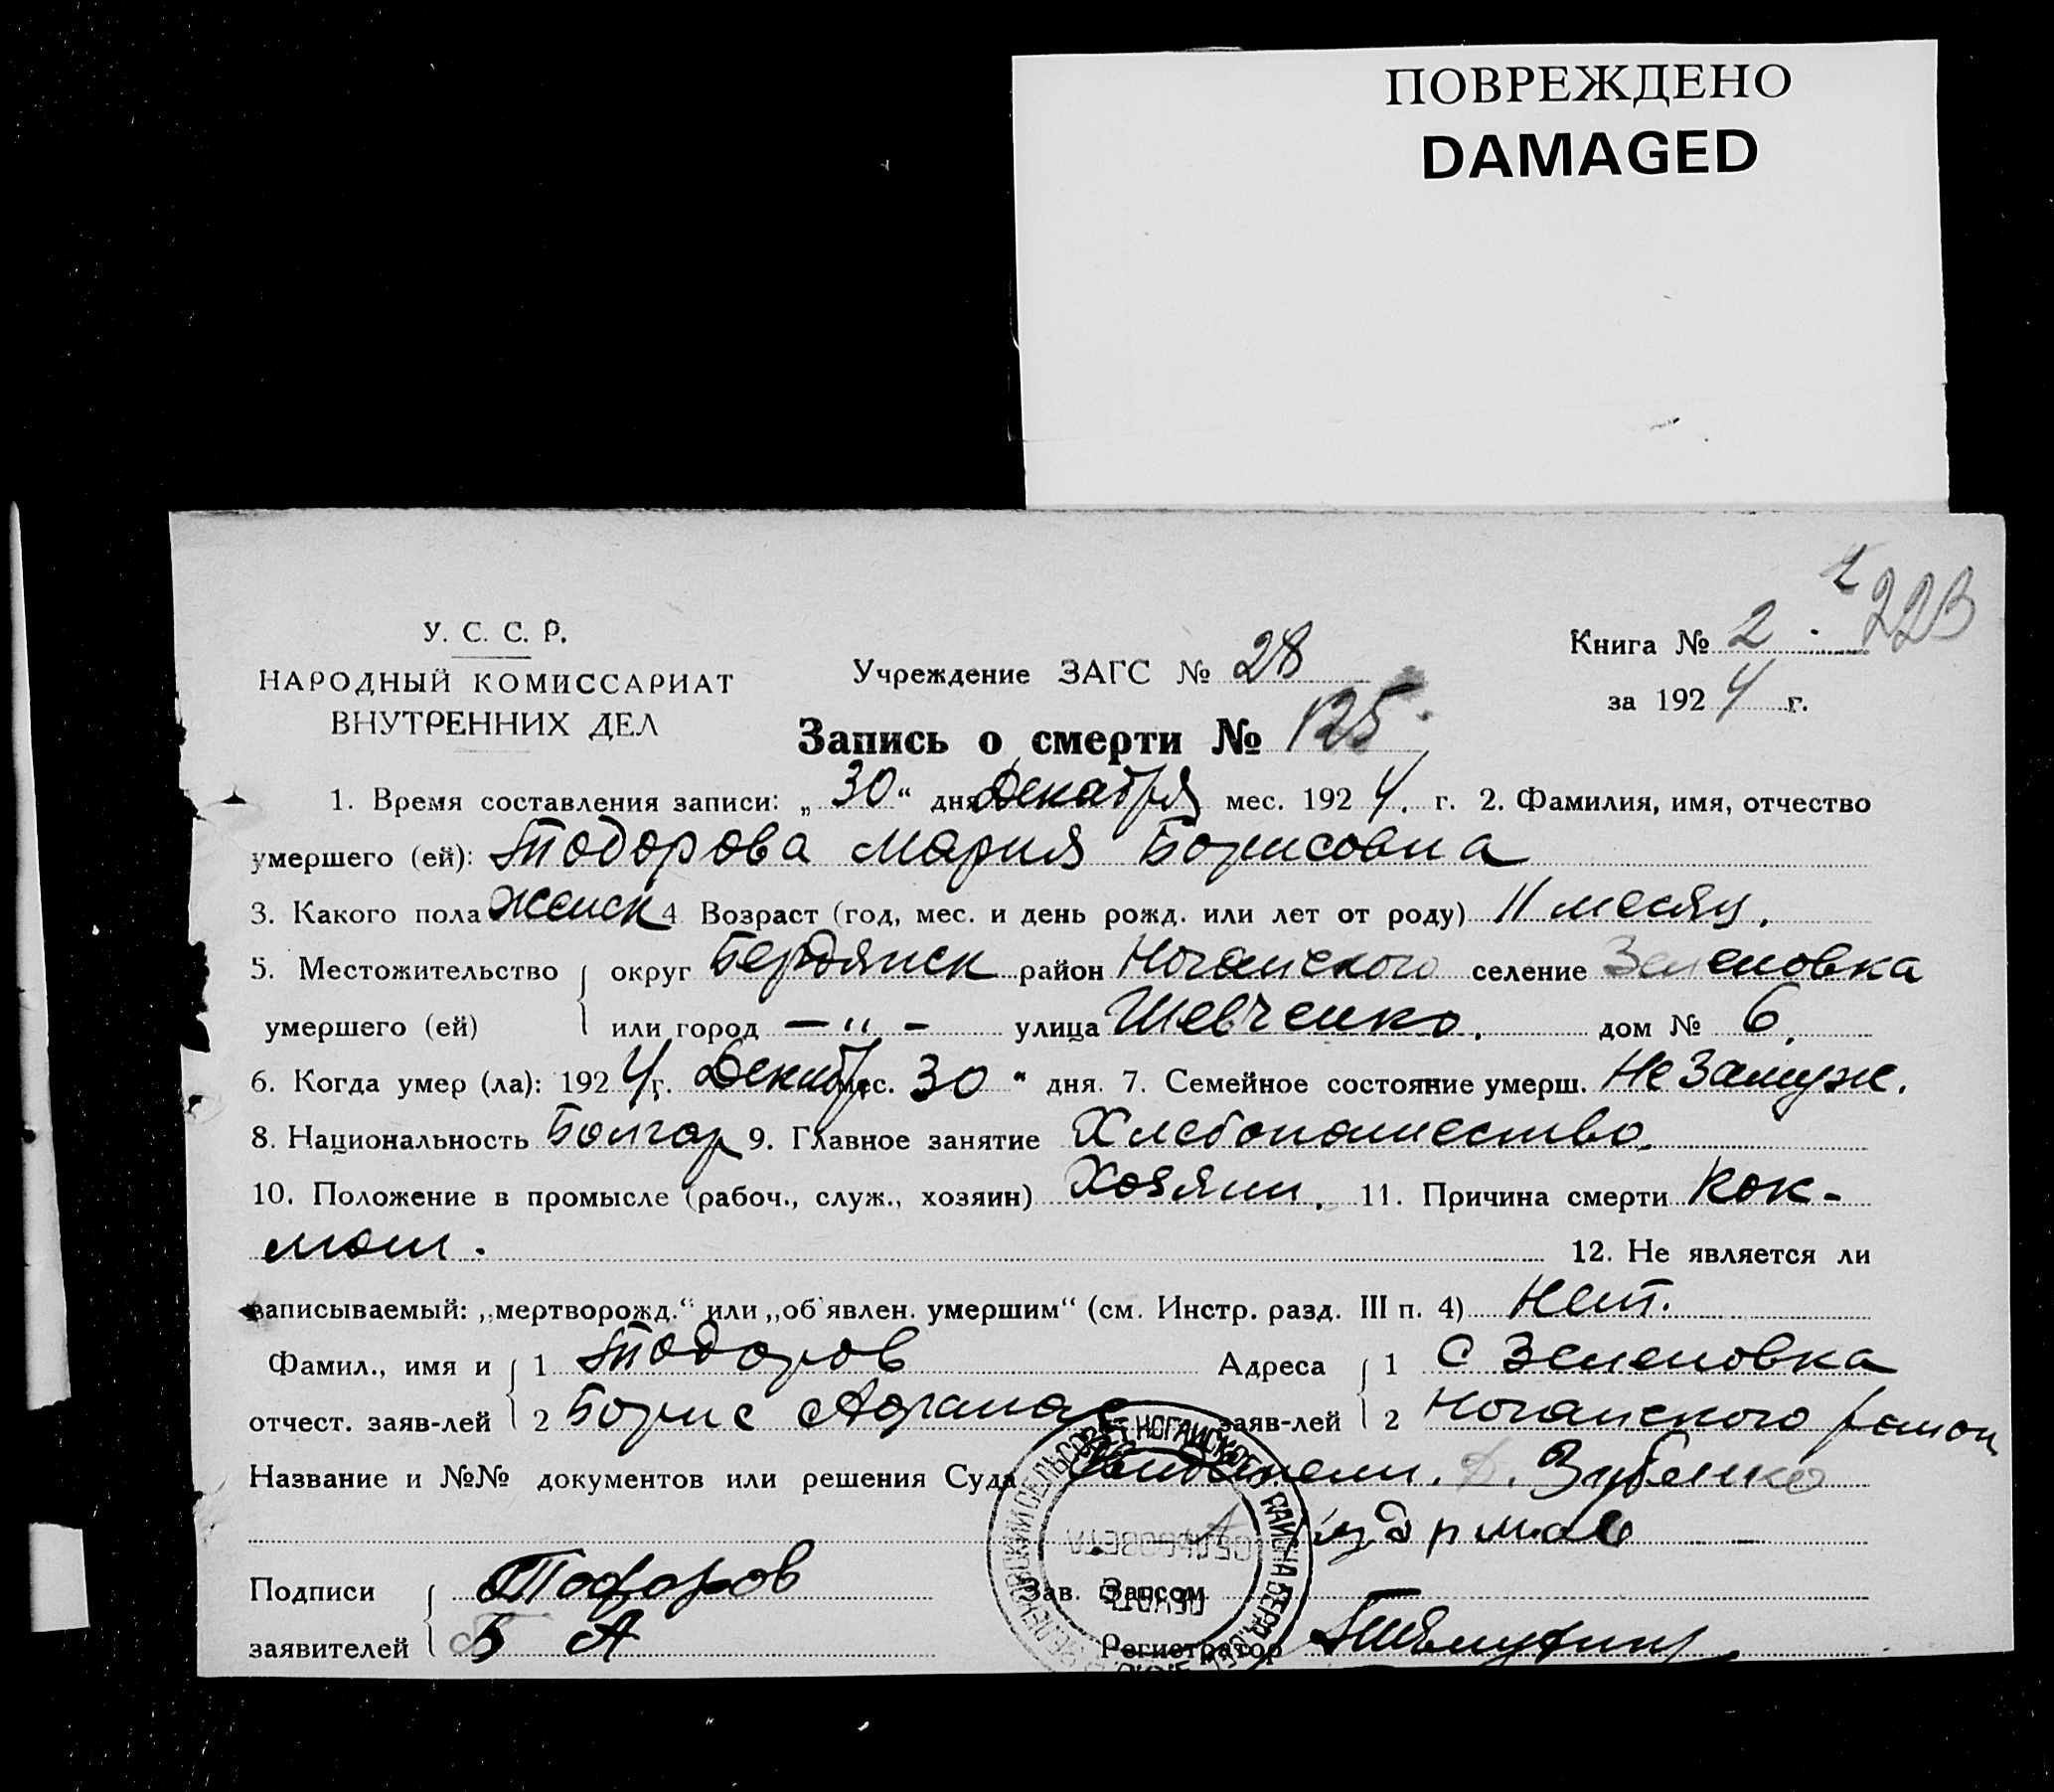 ПОВРЕЖДЕНО
DAMAGED
223
У. С. С. Р.
НАРОДНЫЙ КОМИССАРИАТ
ВНУТРЕННИХ ДЕЛ
Учреждение ЗАГС № 28
Книга № 2
за 1924 г.
Запись о смерти № 125
1. Время составления записи: „30“ дня Декабря мес. 1924 г. 2. Фамилия, имя, отчество
умершего (ей): Тодорова Мария Борисовна
3. Какого пола женск 4 Возраст (год, мес. и день рожд. или лет от роду) 11 месяц.
5. Местожительство округ Бердянск район Ногайского селение Зеленовка
умершего (ей) или город — „ — улица Шевченко. дом № 6.
6. Когда умер (ла): 1924 г. Декабр мес. 30 “ дня. 7. Семейное состояние умерш. Не Замуж.
8. Национальность Болгар 9. Главное занятие Хлебопашество.
10. Положение в промысле (рабоч., служ., хозяин) Хозяин. 11. Причина смерти Кок-
люш. 12. Не является ли
записываемый: „мертворожд.“ или „об'явлен. умершим“ (см. Инстр. разд. III п. 4) Нет.
Фамил., имя и 1 Тодоров Адреса 1 С Зеленовка
отчест. заяв-лей 2 Борис Афанас заяв-лей 2 Ногайского район
Название и №№ документов или решения Суда Зубенко
Подписи Тодоров Зав. Загсом
заявителей Б А Регистратор